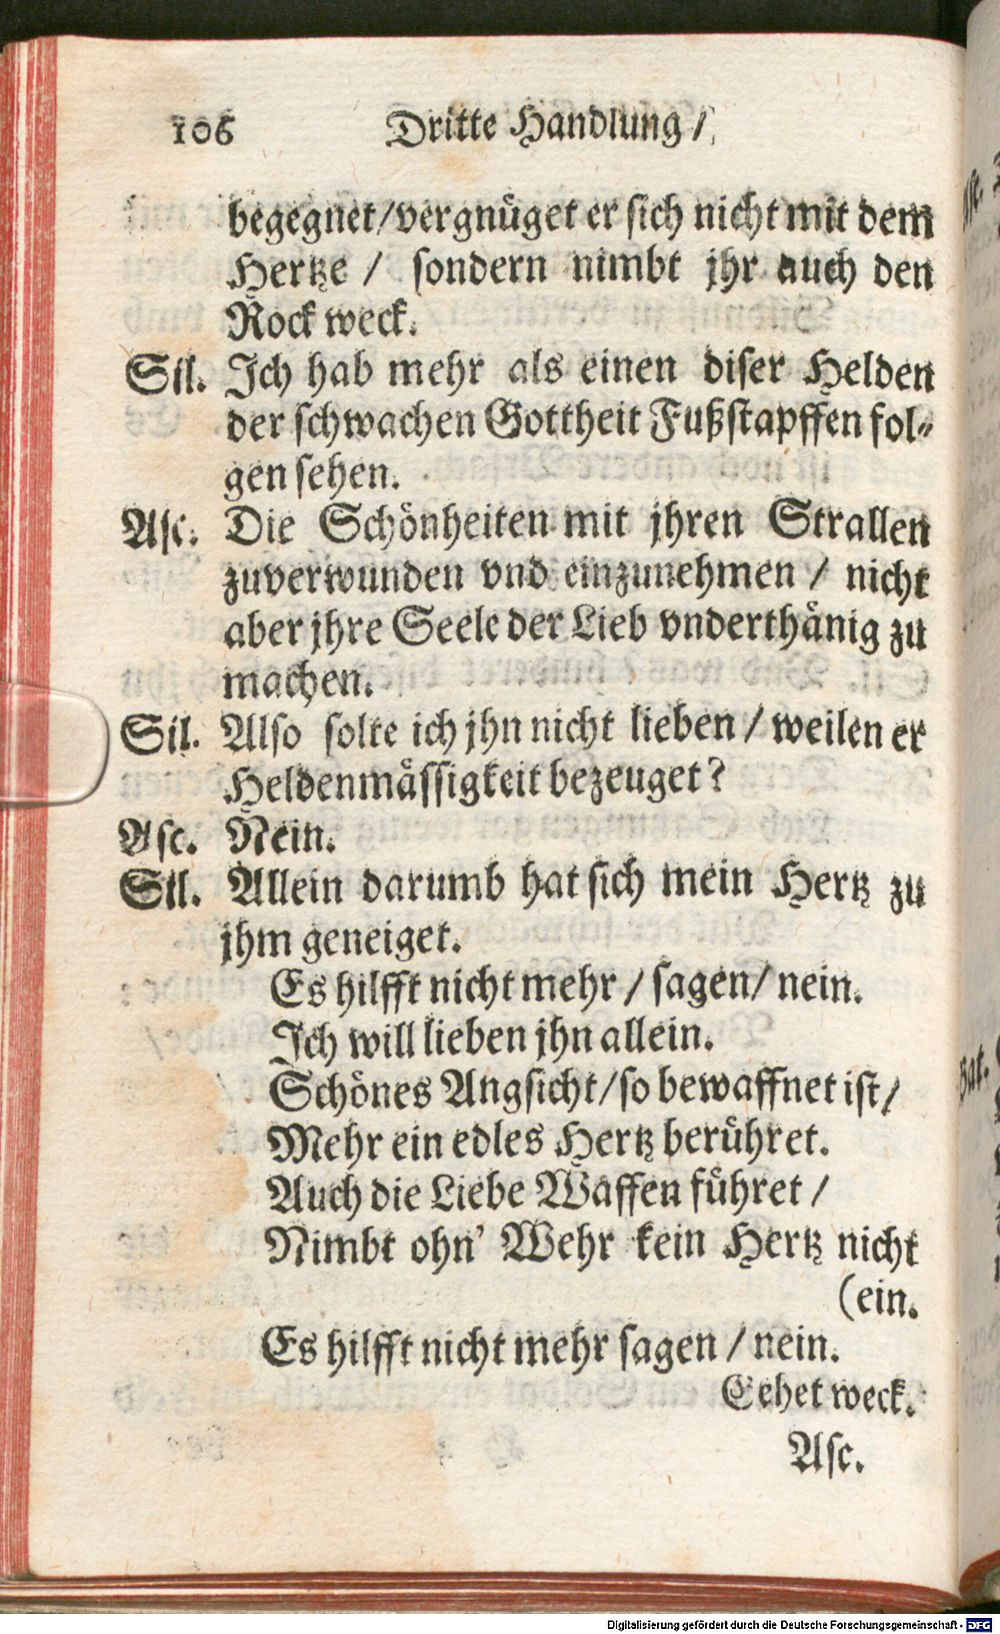 106 Dritte Handlung /
begegnet / vergnüget er sich nicht mit dem
Hertze / sondern nimbt jhr auch den
Rock weck.
Sil. Ich hab mehr als einen diser Helden
der schwachen Gottheit Fußstapffen fol-
gen sehen.
Asc. Die Schönheiten mit jhren Strallen
zuverwunden vnd einzunehmen / nicht
aber jhre Seele der Lieb vnderthänig zu
machen.
Sil. Also solte ich jhn nicht lieben / weilen er
Heldenmässigkeit bezeuget?
Asc. Nein.
Sil. Allein darumb hat sich mein Hertz zu
jhm geneiget.
Es hilfft nicht mehr / sagen / nein.
Ich will lieben jhn allein.
Schönes Angsicht / so bewaffnet ist /
Mehr ein edles Hertz berühret.
Auch die Liebe Waffen führet /
Nimbt ohn' Wehr kein Hertz nicht
(ein.
Es hilfft nicht mehr sagen / nein.
Eehet weck.
Asc.
Digitalisierung gefördert durch die Deutsche Forschungsgemeinschaft - DFG